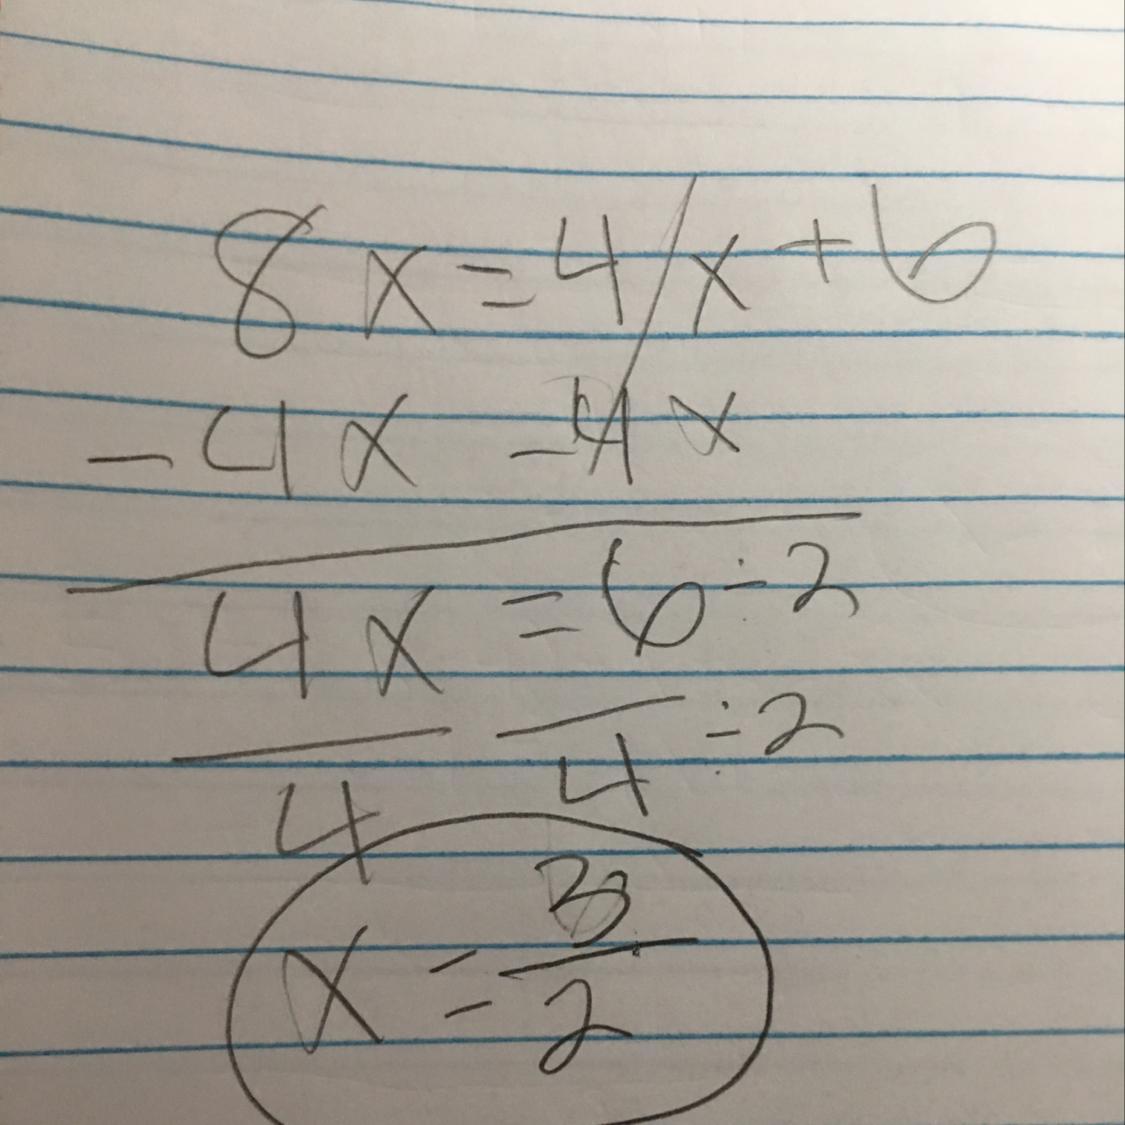 8x = 4x + 6
- 4x - 4x
4x = 6 ÷ 2
4 4 ÷ 2
x = 3
2